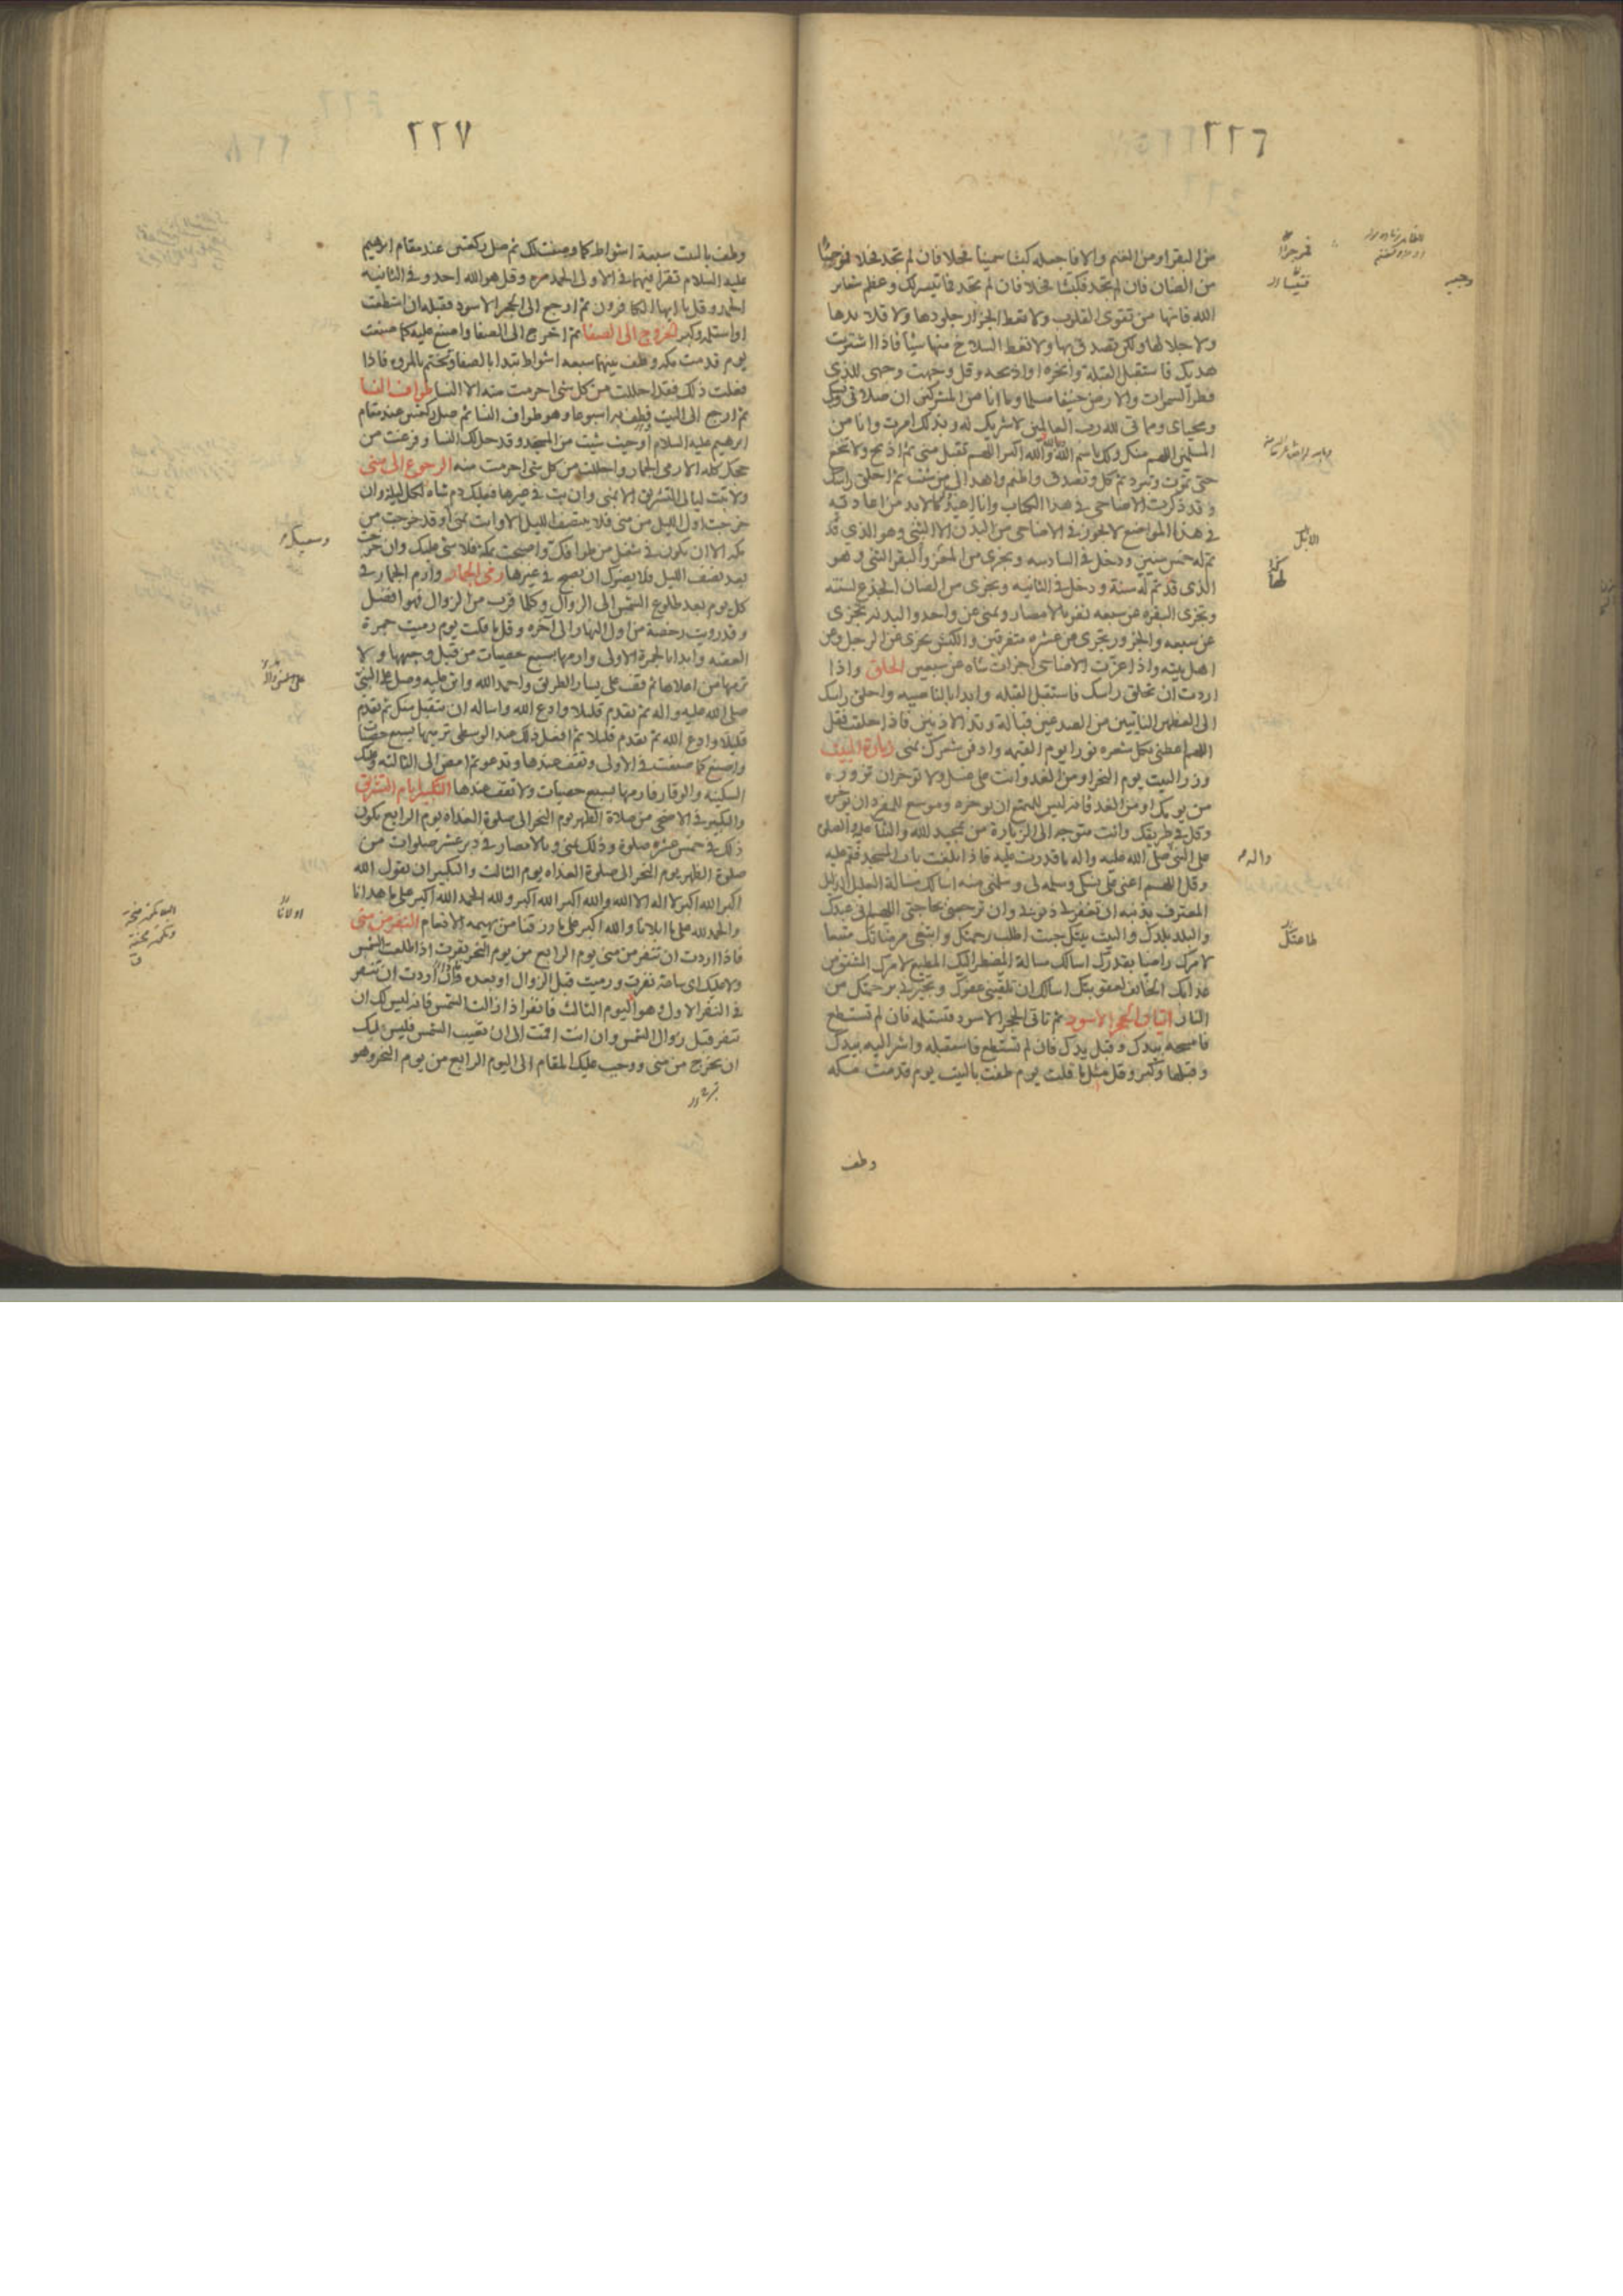 ٢٢٦
من البقر او من الغنم والا فاجعله كبشا سمينا فحلا فان لم تجد فحلا فموجئا
من الضان فان لم تجد فكبشا فحلا فان لم تجد فما تيسر لك وعظم شعائر
الله فانها من تقوى القلوب ولا تعط الجزار جلودها ولا قلائدها
ولا جلالها ولكن تصدق بها ولا تعط السلاخ منها شيئا فاذا اشتريت
هديك فاستقبل القبلة وانحره او اذبحه وقل وجهت وجهي للذي
فطر السموات والارض حنيفا مسلما وما انا من المشركين ان صلاتي ونسكي
ومحياي ومماتي لله رب العالمين لا شريك له وبذلك امرت وانا من
المسلمين اللهم منك ولك باسم الله والله اكبر اللهم تقبل مني ثم اذبح ولا تنخع
حتى تموت وتبرد ثم كل وتصدق واطعم واهد الى من شئت ثم احلق راسك
وقد ذكرت الاضاحي في هذا الكتاب وانا اعيد ما لا بد من اعادته
في هذا الموضع لا يجوز في الاضاحي من البدن الا الثني وهو الذي قد
تم له خمس سنين ودخل في السادسه ويجزى من المعز والبقر الثني وهو
الذي قد تم له سنة ودخل في الثانيه ويجزى من الضان الجذع لسنه
وتجزى البقره عن سبعه نفر بالامصار وبمنى عن واحد والبدنه تجزى
عن سبعه والجزور يجزى عن عشره متفرقين والكبش يجزى عن الرجل وعن
اهل بيته واذا عزت الاضاحى اجزات شاه عن سبعين الحلق واذا
اردت ان تحلق راسك فاستقبل القبله وابدا بالناصيه واحلق راسك
الى العظمين النابتين من الصدغين قبالة وتد الاذنين فاذا حلقت فقل
اللهم اعطني بكل شعره نورا يوم القيمه وادفن شعرك بمنى زيارة البيت
وزر البيت يوم النحر او من الغد وانت على غسل ولا توخر ان تزوره
من يومك او من الغد فانه ليس للمتمتع ان يوخره وموسع للمفرد ان يوخره
وقل في طريقك وانت متوجه الى الزيارة من تمجيد الله والثنا عليه والصلوة
على النبي صلى الله عليه واله ما قدرت عليه فاذا بلغت باب المسجد فقم عليه
وقل اللهم اعني على نسكي وسلمه لي وسلمني منه اسالك مسالة العليل الذليل
المعترف بذنبه ان تغفر لي ذنوبي وان ترجعني بحاجتي اللهم اني عبدك
والبلد بلدك والبيت بيتك جئت اطلب رحمتك وابتغي مرضاتك متبعا
لامرك راضيا بقدرك اسالك مسالة المضطر اليك المطيع لامرك المشفق من
عذابك الخائف لعقوبتك اسالك ان تلقيني عفوك وتجيرني برحمتك من
النار اتيان الحجر الاسود ثم تاتي الحجر الاسود فتستلمه فان لم تستطع
فامسحه بيدك وقبل يدك فان لم تستطع فاستقبله واشر اليه بيدك
وقبلها وكبر وقل مثل ما قلت يوم طفت بالبيت يوم قدمت مكه
وطف
الابل
واله
طاعتك
٢٢٧
وطف بالبيت سبعة اشواط كما وصفت لك ثم صل ركعتين عند مقام ابرهيم
عليه السلام تقرا فيهما في الاولى الحمد مره وقل هو الله احد وفي الثانيه
الحمد وقل يا ايها الكافرون ثم ارجع الى الحجر الاسود فقبله ان استطعت
او استلمه وكبر الخروج الى الصفا ثم اخرج الى الصفا واصنع عليه كما صنعت
يوم قدمت مكه وطف بينهما سبعه اشواط تبدا بالصفا وتختم بالمروه فاذا
فعلت ذلك فقد احللت من كل شى احرمت منه الا النسا طواف النسا
ثم ارجع الى البيت فطف به اسبوعا وهو طواف النسا ثم صل ركعتين عند مقام
ابرهيم عليه السلام او حيث شئت من المسجد وقد حل لك النسا وفرغت من
حجك كله الا رمى الجمار واحللت من كل شى احرمت منه الرجوع الى منى
ولا تبت ليالى التشريق الا بمنى وان بت في غيرها فعليك دم شاه لكل ليله وان
خرجت اول الليل من منى فلا ينتصف الليل الا وانت بمنى او قد خرجت من
مكه الا ان يكون في شغل من طوافك واصبحت بمكه فلا شى عليك وان خرجت
بعد نصف الليل فلا يضرك ان تصبح في غيرها رمى الجمار وارم الجمار في
كل يوم بعد طلوع الشمس الى الزوال وكلما قرب من الزوال فهو افضل
وقد رويت رخصة من اول النهار الى اخره وقل ما قلت يوم رميت جمرة
العقبه وابدا بالجمرة الاولى وارمها بسبع حصيات من قبل وجهها ولا
ترمها من اعلاها ثم قف على يسار الطريق واحمد الله واثن عليه وصل على النبي
صلى الله عليه واله ثم تقدم قليلا وادع الله واساله ان يتقبل منك ثم تقدم
قليلا وادع الله ثم تقدم قليلا ثم افعل ذلك عند الوسطى ترميها بسبع حصيات
واصنع كما صنعت في الاولى وتقف عندها وتدعو ثم امض الى الثالثه وعليك
السكينه والوقار فارمها بسبع حصيات ولا تقف عندها التكبير ايام التشريق
والتكبير في الاضحى من صلاة الظهر يوم النحر الى صلوة الغداه يوم الرابع يكون
ذلك في خمس عشره صلوة وذلك بمنى وبالامصار في دبر عشر صلوات من
صلوة الظهر يوم النحر الى صلوة الغداه يوم الثالث والتكبير ان تقول الله
اكبر الله اكبر لا اله الا الله والله اكبر الله اكبر ولله الحمد الله اكبر على ما هدانا
والحمد لله على ما ابلانا والله اكبر على ما رزقنا من بهيمه الانعام النفر من منى
فاذا اردت ان تنفر من منى يوم الرابع من يوم النحر نفرت اذا طلعت الشمس
ولا عليك اى ساعة نفرت ورميت قبل الزوال او بعده فاذا اردت ان تنفر
في النفر الاول وهو اليوم الثالث فانفر اذا زالت الشمس فانه ليس لك ان
تنفر قبل زوال الشمس وان انت اقمت الى ان تغيب الشمس فليس لك
ان تخرج من منى ووجب عليك المقام الى اليوم الرابع من يوم النحر وهو